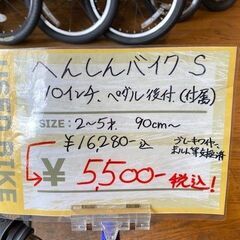 へんしんバイク S
10インチ、ペダル後付(付属)
SIZE:2~5才 90cm~
¥16,280-込
ブレーキワイヤ、
ボルト等交換済
¥ 5,500-税込!
USED BIKE